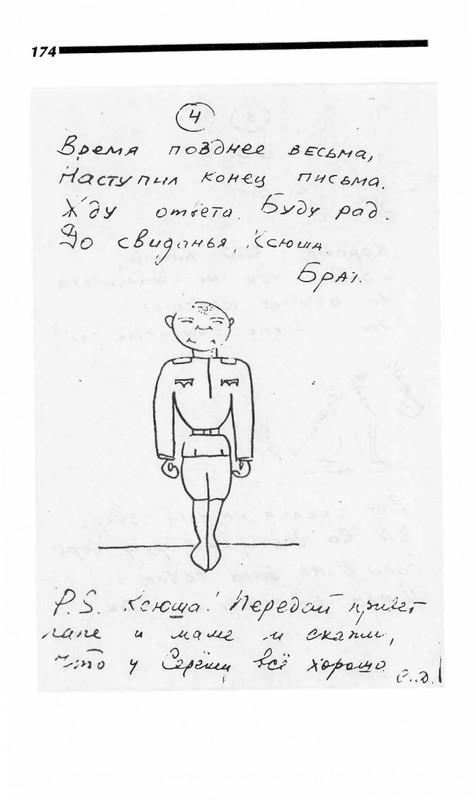 174
4
Время позднее весьма,
Наступил конец письма.
Жду ответа. Буду рад.
До свиданья, Ксюша
Брат.
P.S. Ксюша! Передай привет
папе и маме и скажи,
что у Серёжи всё хорошо
С.Д.